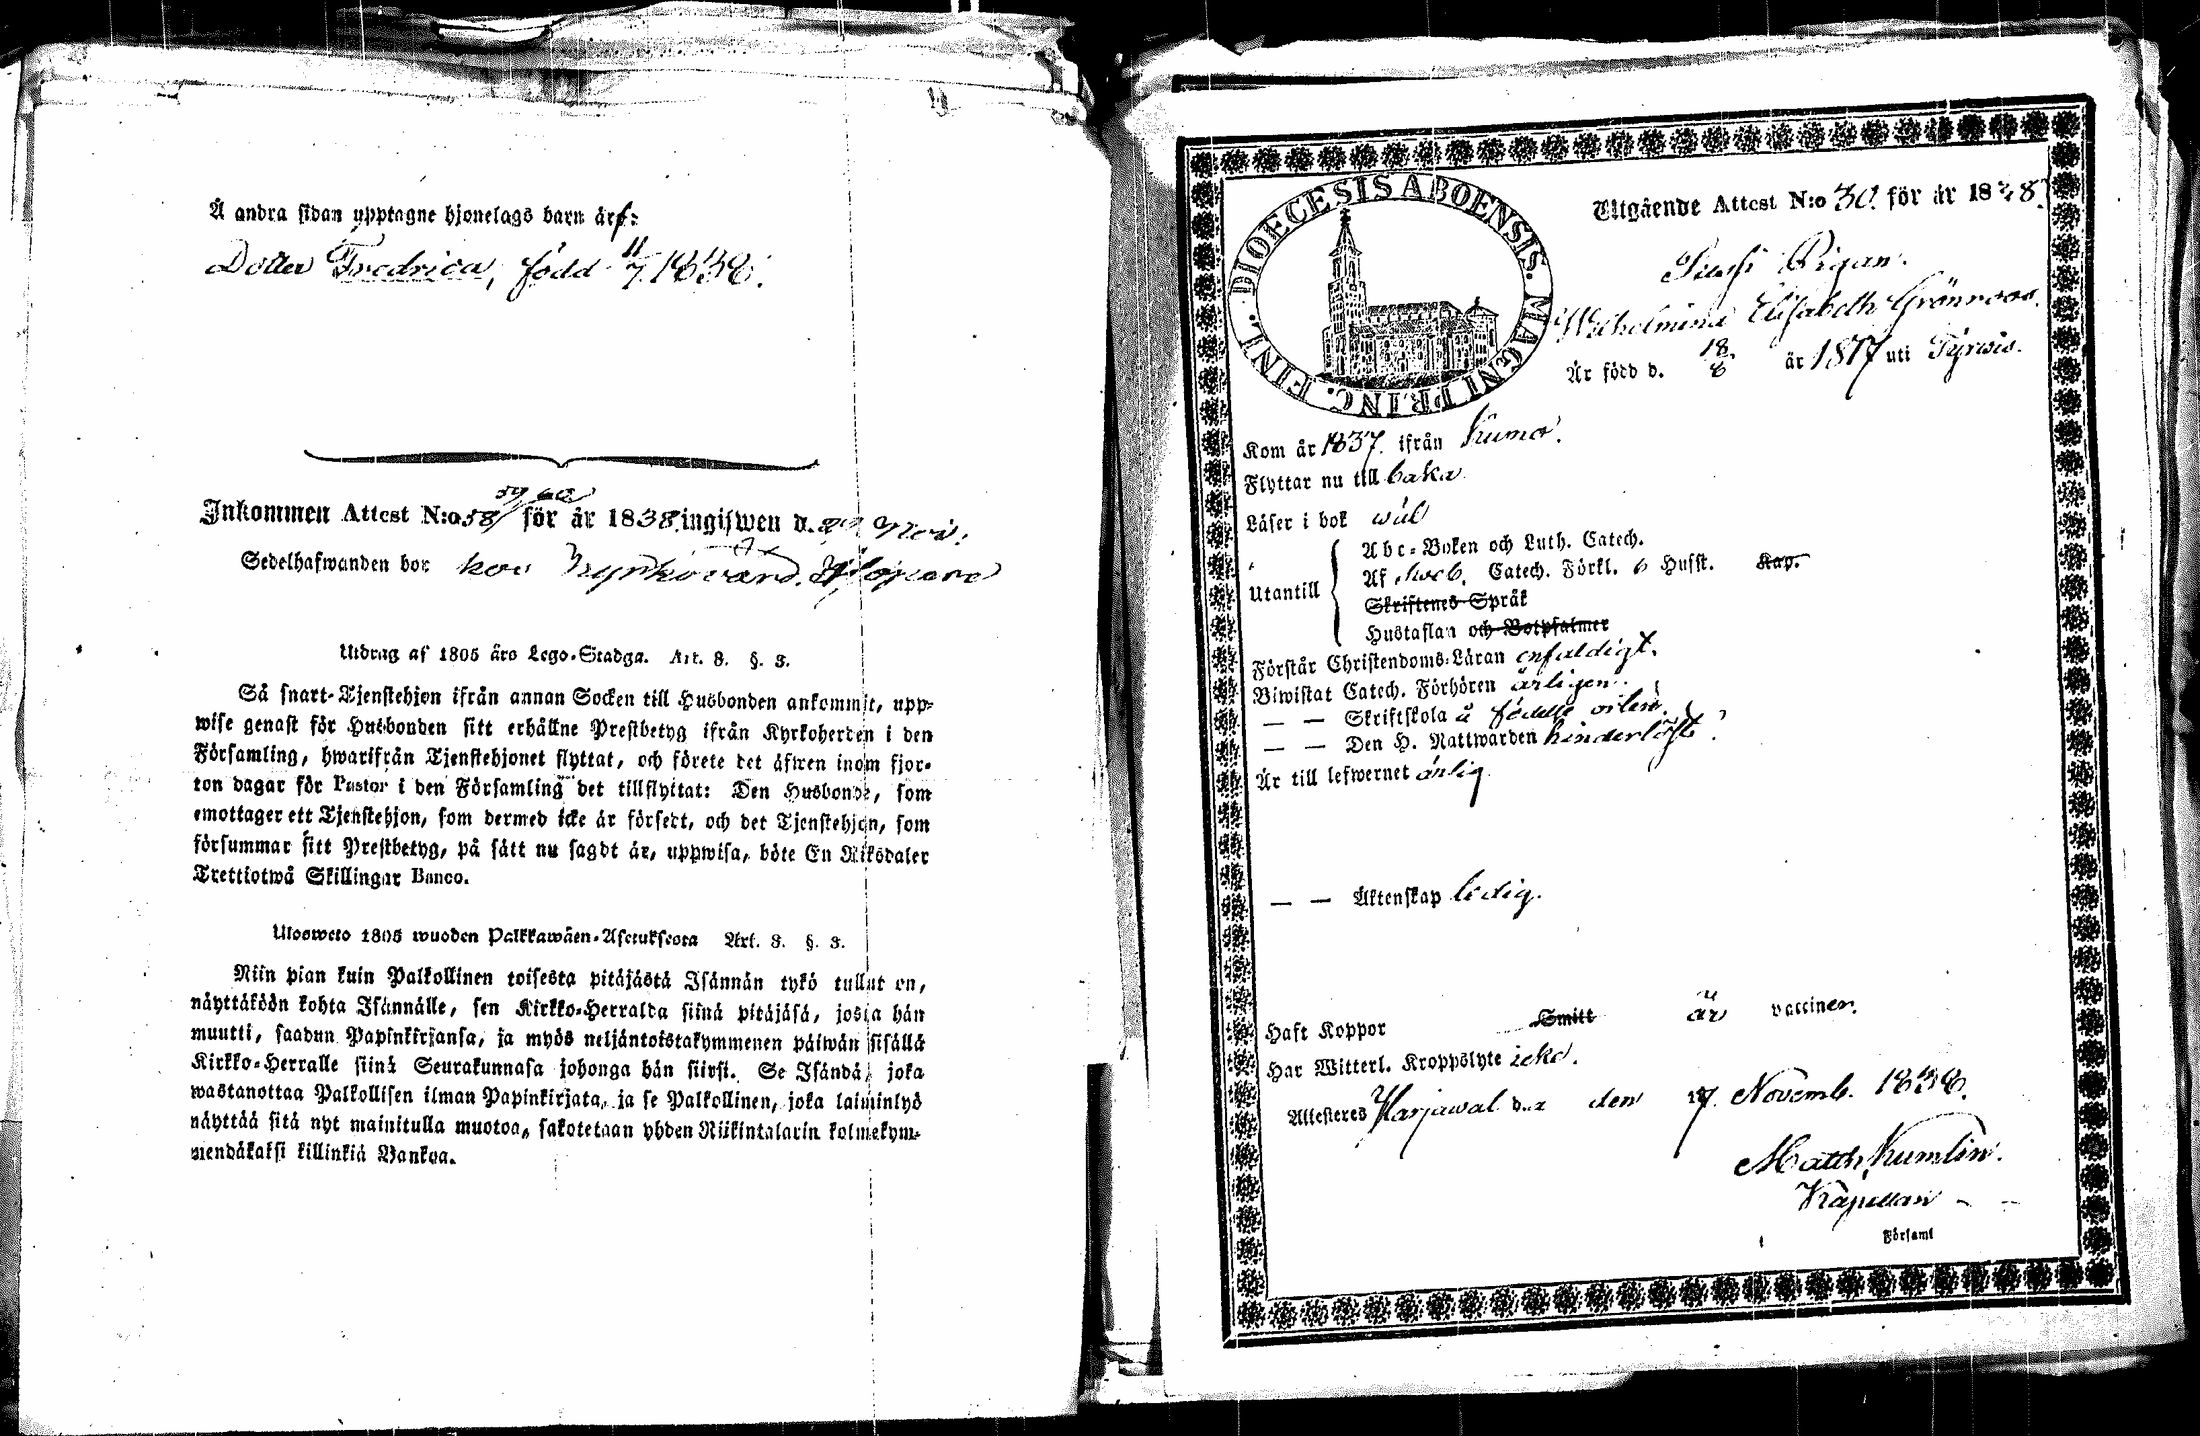 Å andra sidan upptagne hjonelags barn är:
Dotter Fredrica, född 11/7 1838.
59 60
Inkommen Attest N:o 58 för år 1838. ingiswen d. Nov.
Sedelhafwanden bor hos Kyrkovärd
Utdrag af 1805 års Lego-Stadga. Art. 3. §. 3.
Så snart Tjenstehjon ifrån annan Socken till Husbonden ankommit, upp-
wise genast för Husbonden sitt erhållne Prestbetyg ifrån Kyrkoherden i den
Församling, hwarifrån Tjenstehjonet flyttat, och förete det äfwen inom fjor-
ton dagar för Pastor i den Församling det tillflyttat: Den Husbonde, som
emottager ett Tjenstehjon, som dermed icke är försedt, och det Tjenstehjon, som
försummar sitt Prestbetyg, på sätt nu sagdt är, uppwisa, böte En Riksdaler
Trettiotwå Skillingar Banco.
Ulosweto 1805 wuoden Palkkawäen-Asetuksesta Art. 3. §. 3.
Niin pian kuin Palkollinen toisesta pitäjästä Isännän tykö tullut on,
näyttäköön kohta Isännälle, sen Kirkko-Herralda siinä pitäjäsä, josta hän
muutti, saadun Papinkirjansa, ja myös neljäntoistakymmenen päiwän sisällä
Kirkko-Herralle siinä Seurakunnasa johonga hän siirsi. Se Isändä, joka
wastanottaa Palkollisen ilman Papinkirjata, ja se Palkollinen, joka laiminlyö
näyttää sitä nyt mainitulla muotoa, sakotetaan yhden Riikintalarin kolmekym-
mendäkaksi killinkiä Bankoa.
DIOECESIS ABOENSIS. MAGNI PRINC. FINL.
Utgående Attest N:o 30. för år 1838.
Pigan
Wilhelmina Elisabeth Grönroos.
Är född d. 18/8 år 1817 uti Tyrwis.
Kom år 1837. ifrån Kumo.
Flyttar nu till baka
Läser i bok wäl
Utantill
Abc-Boken och Luth. Catech.
Af Sweb. Catech. Förkl. 6 Hufst. Kap.
Skriftenes Språk
Hustaflan och Botpsalmer
Förstår Christendoms-Läran enfaldigt.
Biwistat Catech. Förhören årligen.
— — Skriftskola å födelse orten.
— — Den H. Nattwarden hinderlöst.
Är till lefwernet ärlig.
— — Äktenskap ledig.
Haft Koppor Smitt är vaccinen.
Har Witterl. Kroppslyte icke.
Attesteres Harjawalda den 17. Novemb. 1838.
Matth. Kumlin.
Kapellan
Församl